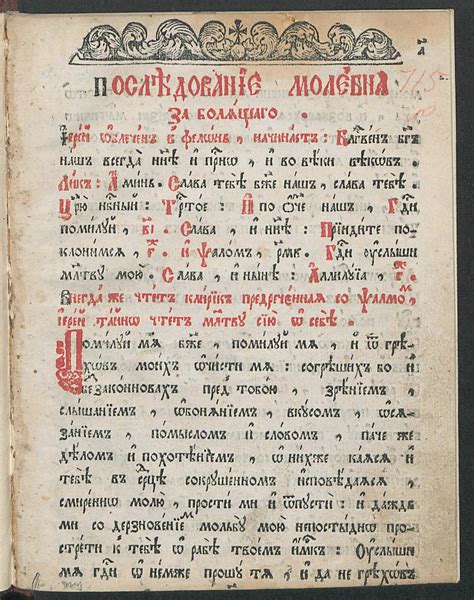 а҃
Послѣдованїе молебнаѧ
За болѧщаго.
Їерей ѡблечен в фелѡнь, начинаетъ: Бл҃гвен бг҃ъ
нашъ всегда нн҃ѣ и прⷭ҇нѡ, и во вѣки вѣковъ.
Ликъ: Аминь. Слава тебѣ бж҃е нашъ, слава тебѣ.
Цр҃ю нб҃ный: Трⷭ҇тое: И по ѻч҃е нашъ, Гдⷭ҇и
помилуй, в҃і. Слава, и нн҃ѣ: Прїидите по-
клонимсѧ, г҃. и Ѱаломъ, рм҃в. Гдⷭ҇и ѹслыши
млⷮтву мою. Слава, и нынѣ: Аллилуїа, г҃.
Внегда же чтетъ клирикъ предреченнаѧ со ѱалмо,
їерей тайнѡ чтетъ млⷮтву сїю ѡ себѣ.
Помилуй мѧ бж҃е, помилуй мѧ, и ѿ грѣ-
хѡвъ моихъ ѡчисти мѧ: согрѣшихъ бо и
безаконновахъ предъ тобою, зрѣнїемъ,
слышанїемъ, ѡбонѧнїемъ, вкусомъ, ѡсѧ-
занїемъ, помысломъ и словомъ, паче же
дѣломъ и похотѣнїемъ, ѡ нихже каѧсѧ и
тебѣ въ срⷣцѣ сокрушенномъ исповѣдаѧсѧ,
смиреннѡ молю, прости ми и ѿпусти: и даждь
ми со дерзновенїе мольбу мою непостыднѡ про-
стрѣти к тебѣ ѡ рабѣ твоемъ имкъ: Ѹслыши
мѧ гдⷭ҇и ѡ немже прошу тѧ, и да не грѣховъ